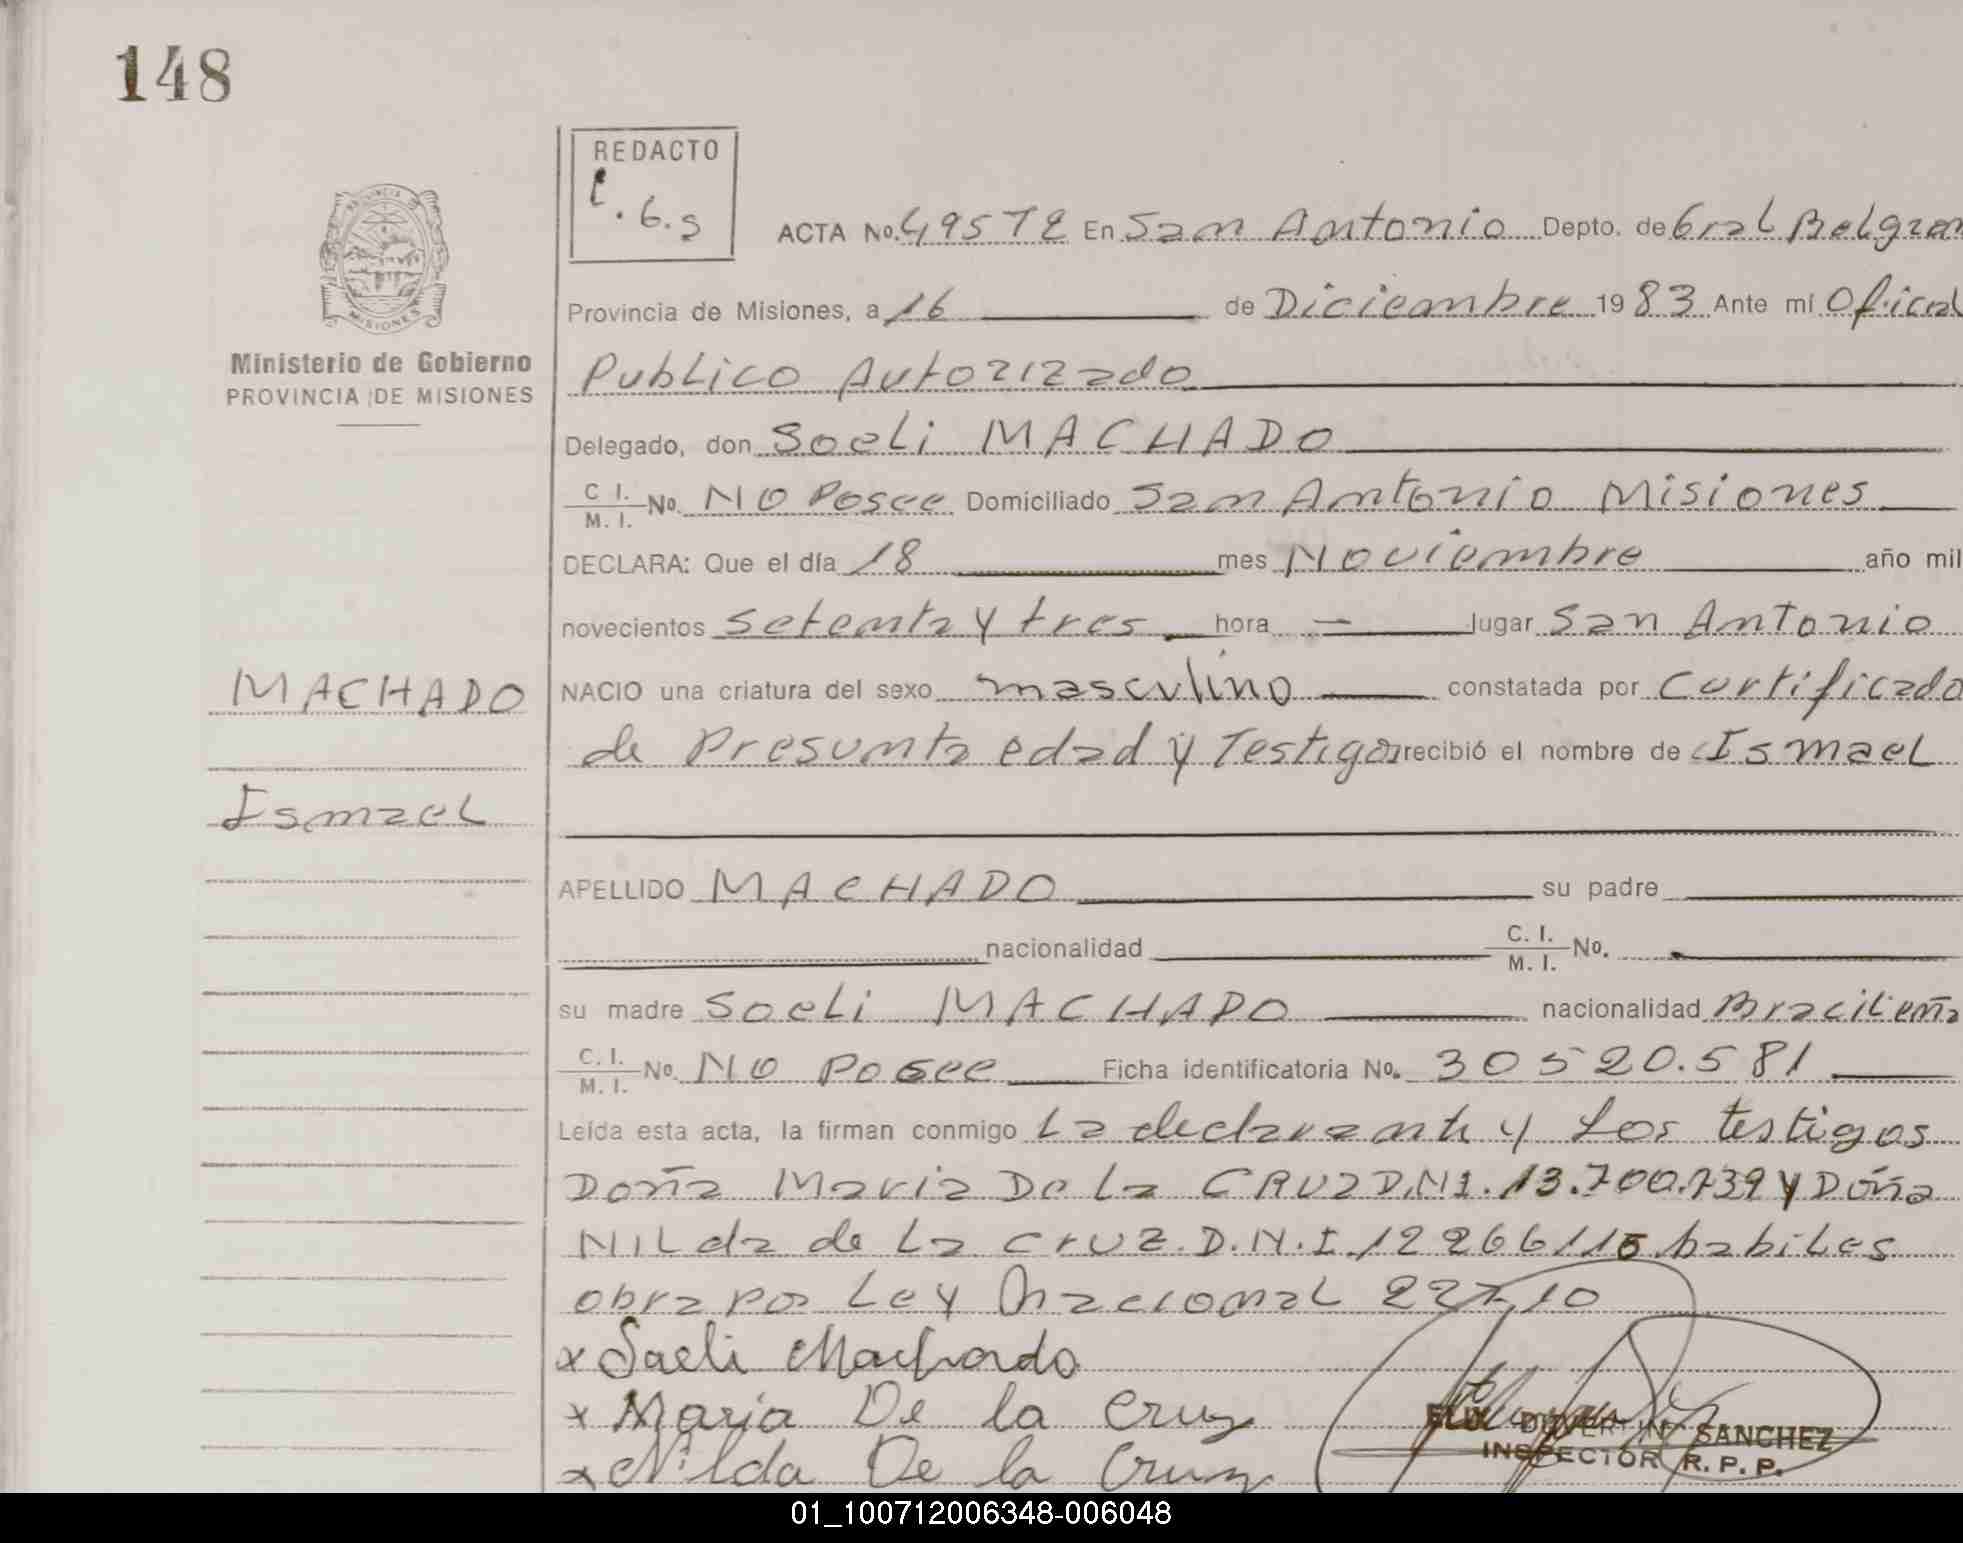 148
REDACTO
C.6.S
ACTA No. 495TE En San Antonio Depto. de Gral Belgran
Provincia de Misiones, a 16 de Diciembre 1983 Ante mí Oficial
Publico Autorizado
Ministerio de Gobierno
PROVINCIA DE MISIONES
Delegado, don Soeli MACHADO
C. I. M. I. No. NO Posee Domiciliado San Antonio Misiones
DECLARA: Que el día 18 mes Noviembre año mil
novecientos setenta y tres hora — lugar San Antonio
MACHADO
NACIO una criatura del sexo masculino constatada por Certificado
de Presunta edad y Testigos recibió el nombre de Ismael
Ismael
APELLIDO MACHADO su padre
nacionalidad C. I. M. I. No.
su madre Soeli MACHADO nacionalidad Bracileña
C. I. M. I. No. NO Posee Ficha identificatoria No. 30520.581
Leída esta acta, la firman conmigo La declarante y Los testigos
Doña Maria De la CRUZ D.N1.13.700.739 y Doña
NILda de La Cruz.D.N.I.12266115 habiles
obra por Ley Nacional 22710
x Saeli Machado
x Maria De la Cruz
x Nilda De la Cruz
SANCHEZ
INSPECTOR R. P. P.
01_100712006348-006048